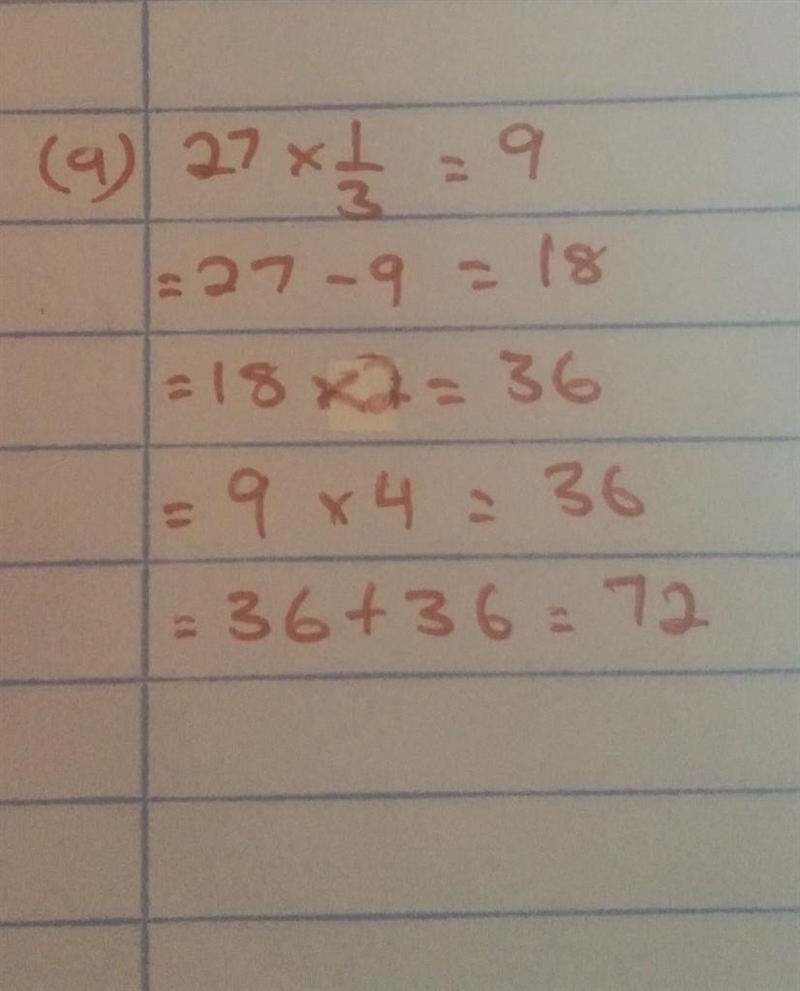 (a) 27 × 1/3 = 9
= 27 - 9 = 18
= 18 ×2 = 36
= 9 × 4 = 36
= 36 + 36 = 72